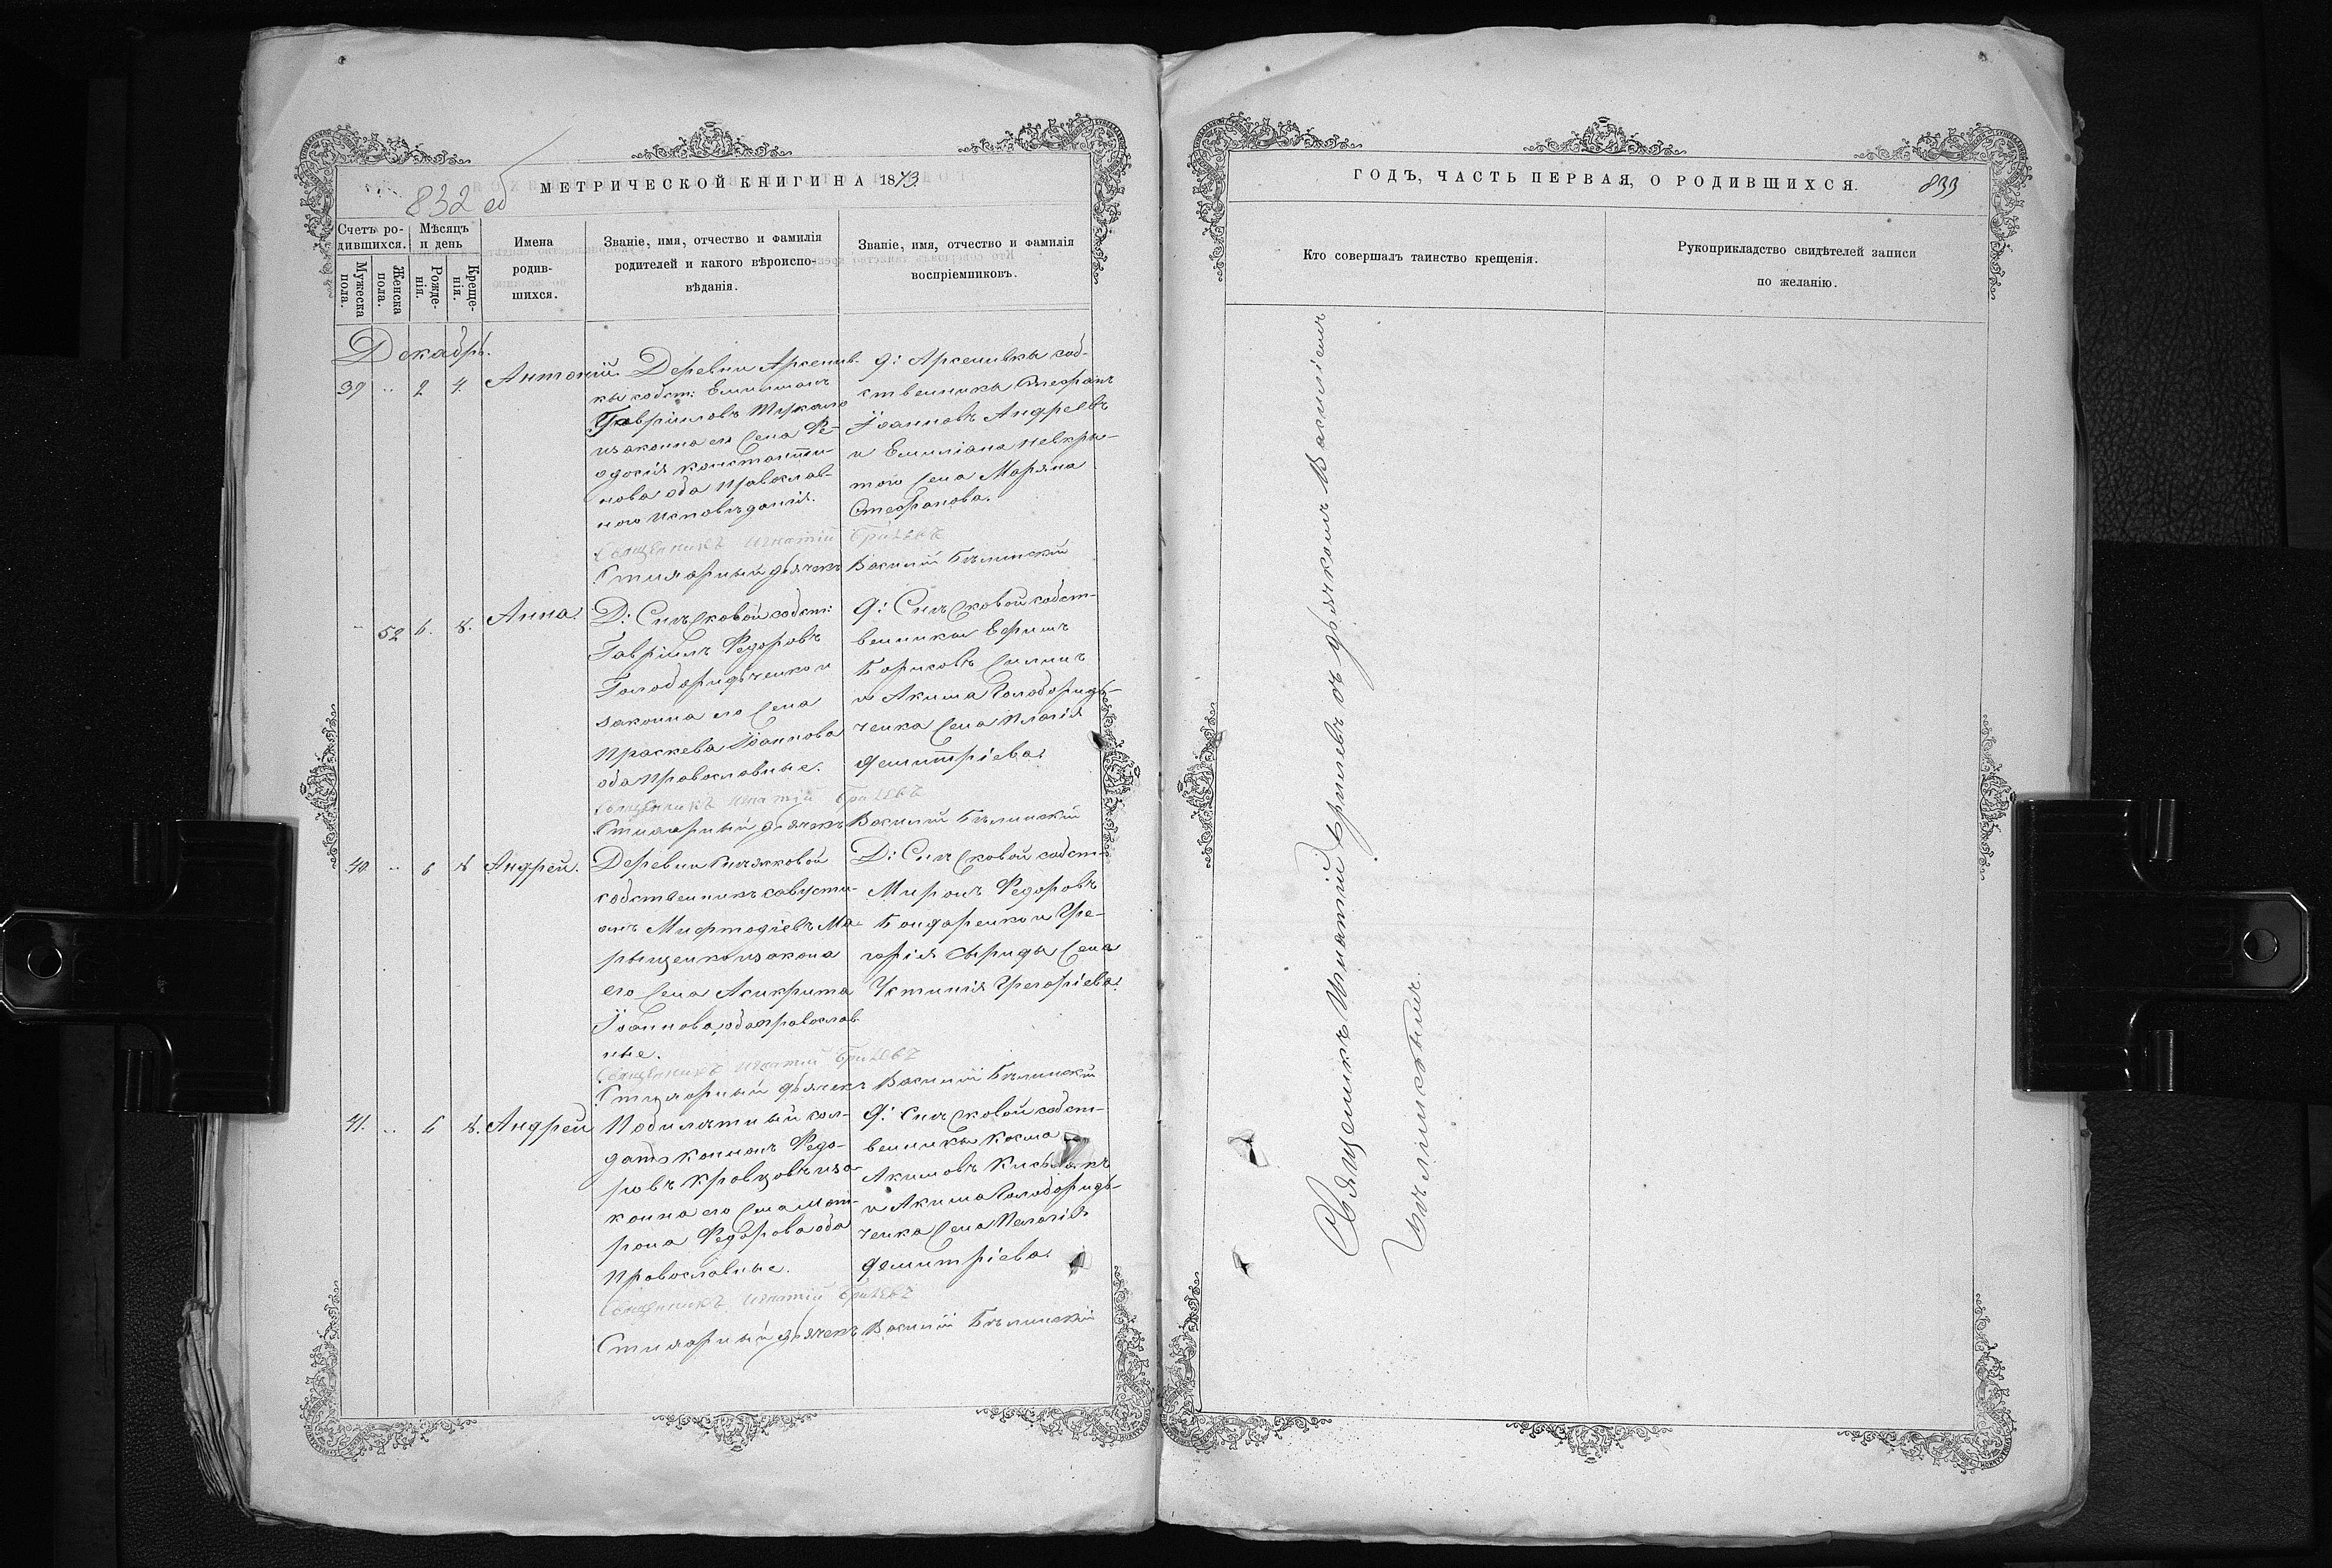 832 об
МЕТРИЧЕСКОЙ КНИГИ НА 1873
Счетъ ро-
дившихся.
Мѣсяцъ
и день
Мужеска
пола.
Женска
пола.
Рожде-
нія.
Креще-
нія.
Имена
родив-
шихся.
Званіе, имя, отчество и фамилія
родителей и какого вѣроиспо-
вѣданія.
Званіе, имя, отчество и фамилія
воспріемниковъ.
Декабрь.
39 .. 2 4. Антоній.
Деревни Арсенив-
ки собст: Емилианъ
Гавріиловъ
изаконна его жена Фе-
одосія Константи-
нова оба православ-
ного исповѣданія.
д: Арсенивки соб-
ственника Стефанъ
Іоанновъ Андреевъ
и Емиліана Невкры-
того жена Маряна
Стефанова.
Священникъ Игнатій
Стихарный дьячекъ Василій Бѣлинскій
.. 52 6. 8. Анна.
Д: Снѣжковой собст:
Гавріилъ Федоровъ
Голобородьченко и
законна его жена
Праскева Іоаннова
оба православные.
д: Снѣжковой собст-
венники Ефимъ
Борисовъ
и Акима Голобородь-
ченка жена Пелагія
Димитріева.
Священникъ Игнатій
Стихарный дьячекъ Василій Бѣлинскій
40 .. 6 8 Андрей.
Деревни Снѣжковой
собственникъ Савусти-
анъ Мефтодіевъ Ма-
рыщенко изакона
его жена Асикрита
Іоаннова, оба православ-
ные.
Д: Снѣжковой собст-
Миронъ Федоровъ
Бондаренко и Гре-
горія Свириды жена
Устинія Грегоріева.
Священникъ Игнатій
Стихарный дьячекъ Василій Бѣлинскій
41. .. 6 8. Андрей
Подилетный сол-
датъ Федо-
ровъ Кравцовъ иза-
конна его жена Мат-
рона Федорова оба
православные.
д: Снѣжковой собст-
венники Косма
Акимовъ Кисьлякъ
и Акима Голобородь-
ченка жена Пелагія
Димитріева.
Священникъ Игнатій
Стихарный дьячекъ Василій Бѣлинскій
ГОДЪ, ЧАСТЬ ПЕРВАЯ, О РОДИВШИХСЯ.
833
Кто совершалъ таинство крещенія.
Рукоприкладство свидѣтелей записи
по желанію.
Священникъ Игнатій съ дьячкомъ Василіемъ
Бѣлинскимъ.